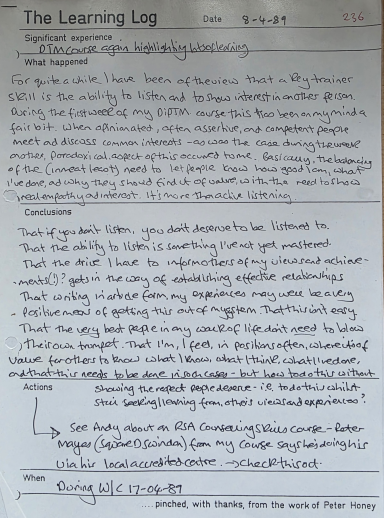 The Learning Log Date 8-4-89 236
Significant experience
DTM course again highlighting lots of learning
What happened
For quite a while I have been of the view that a key trainer
skill is the ability to listen and to show interest in another person.
During the first week of my DipTM course this has been on my mind a
fair bit. When opinionated, often assertive, and competent people
meet and discuss common interests - as was the case during the week
another, Paradoxical aspect of this occured to me. Basically, the balancing
of the (innate) need to let people know how good I am, what
I've done, and why they should find it of value, with the need to show
real empathy and interest. It's more than active listening.
Conclusions
That if you don't listen, you don't deserve to be listened to.
That the ability to listen is something I've not yet mastered.
That the drive I have to inform others of my views and achieve-
ments(!)? gets in the way of establishing effective relationships
That writing in article form, my experiences may well be a very
positive means of getting this out of my system. That this isn't easy.
That the very best people in any walk of life don't need to blow
their own trumpet. That I'm, I feel, in positions often, where it is of
value for others to know what I know, what I think, what I've done,
and that this needs to be done in such cases - but how to do this without
Actions showing the respect people deserve - i.e. to do this whilst
still seeking learning from others views and experiences?
See Andy about an RSA Counselling Skills course - Peter
Mayes (Square D Swindon) from my course says he's doing his
via his local accredited centre. → check this out.
When
During W/C 17-04-89
....pinched, with thanks, from the work of Peter Honey